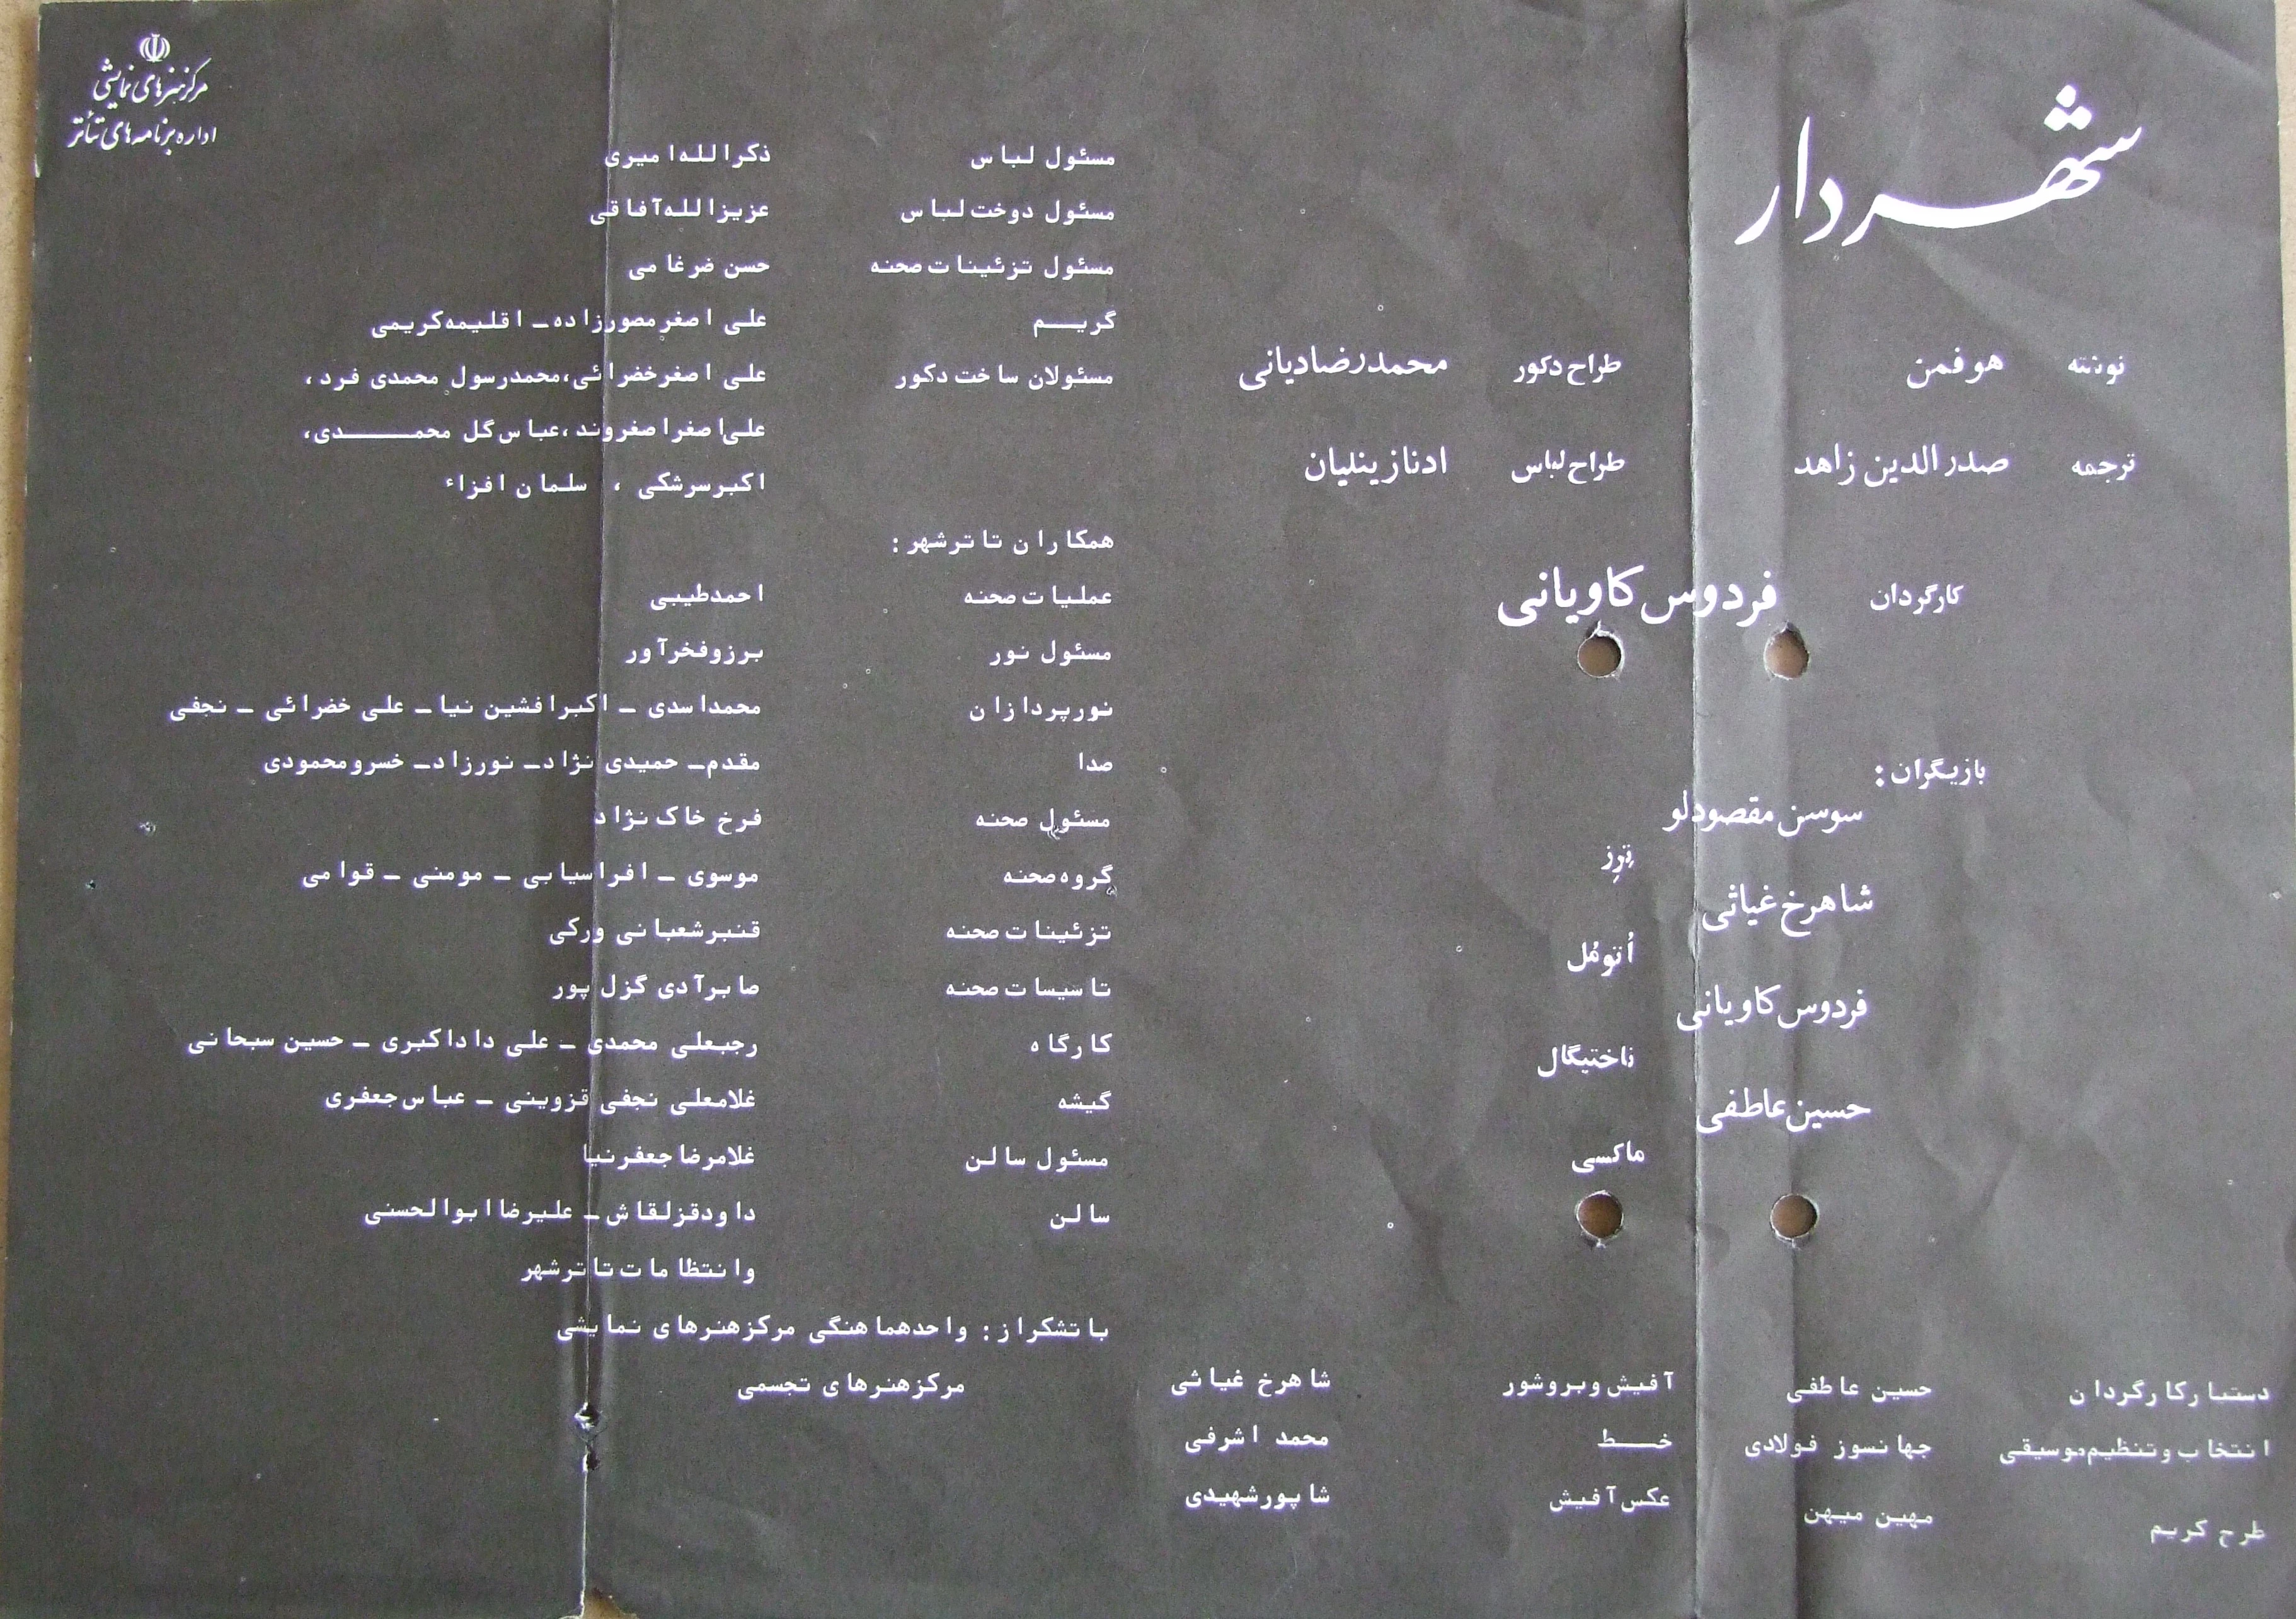 شهردار
نوشته هوفمن
ترجمه صدرالدین زاهد
طراح دکور محمدرضادیانی
طراح لباس ادنازینلیان
کارگردان فردوس کاویانی
بازیگران:
سوسن مقصودلو
تِرِز
شاهرخ غیاثی
اُتومُل
فردوس کاویانی
ناختیگال
حسین عاطفی
ماکسی
دستیارکارگردان حسین عاطفی
انتخاب وتنظیم موسیقی جهانسوز فولادی
طرح گریم مهین میهن
آفیش وبروشور شاهرخ غیاثی
خط محمد اشرفی
عکس آفیش شاپورشهیدی
مسئول لباس ذکرالله امیری
مسئول دوخت لباس عزیزالله آفاقی
مسئول تزئینات صحنه حسن ضرغامی
گریم علی اصغرمصورزاده ـ اقلیمه کریمی
مسئولان ساخت دکور علی اصغرخضرائی، محمدرسول محمدی فرد،
علی اصغراصغروند، عباس گل محمدی،
اکبرسرشکی ، سلمان افزاء
همکاران تاترشهر:
عملیات صحنه احمدطیبی
مسئول نور برزوفخرآور
نورپردازان محمداسدی ـ اکبرافشین نیا ـ علی خضرائی ـ نجفی
صدا مقدم ـ حمیدی نژاد ـ نورزاد ـ خسرومحمودی
مسئول صحنه فرخ خاک نژاد
گروه صحنه موسوی ـ افراسیابی ـ مومنی ـ قوامی
تزئینات صحنه قنبرشعبانی ورکی
تاسیسات صحنه صابرآدی گزل پور
کارگاه رجبعلی محمدی ـ علی داداکبری ـ حسین سبحانی
گیشه غلامعلی نجفی قزوینی ـ عباس جعفری
مسئول سالن غلامرضاجعفرنیا
سالن داودقزلقاش ـ علیرضاابوالحسنی
وانتظامات تاترشهر
باتشکراز: واحدهماهنگی مرکزهنرهای نمایشی
مرکزهنرهای تجسمی
مرکز هنرهای نمایشی
اداره برنامه های تئاتر